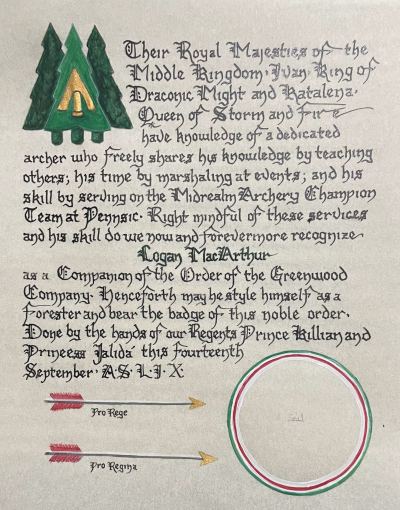 Their Royal Majesties of the
Middle Kingdom · Ivan · King of
Draconic Might and Katalena ·
Queen of Storm and Fire
have knowledge of a dedicated
archer who freely shares his knowledge by teaching
others; his time by marshaling at events; and his
skill by serving on the Midrealm Archery Champion
Team at Pennsic · Right mindful of these services
and his skill do we now and forevermore recognize
Logan MacArthur
as a Companion of the Order of the Greenwood
Company · Henceforth may he style himself as a
Forester and bear the badge of this noble order ·
Done by the hands of our Regents Prince Killian and
Princess Jalida this fourteenth
September · A·S·L·I·X·
Pro Rege
Seal
Pro Regina